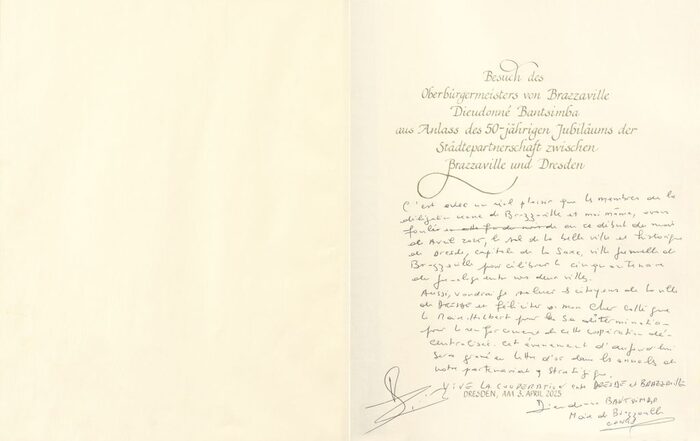 Besuch des
Oberbürgermeisters von Brazzaville
Dieudonné Bantsimba
aus Anlass des 50-jährigen Jubiläums der
Städtepartnerschaft zwischen
Brazzaville und Dresden
C'est avec un réel plaisir que les membres de la
délégation venue de Brazzaville et moi même, avons
foulé ce début de mois
d'Avril 2025, le sol de la belle ville et historique
de Dresde, capitale de la Saxe, ville jumelle de
Brazzaville pour célébrer le cinquantenaire
de jumelage entre nos deux villes.
Aussi, voudrais-je saluer citoyens de la ville
de DRESDE et féliciter mon cher collègue
le Maire Hilbert pour sa détermination
pour le renforcement de cette coopération dé-
centralisée. Cet évènement d'aujourd'hui
sera gravé en lettre d'or dans les annales de
notre partenariat stratégique.
VIVE LA COOPERATION entre DRESDE et BRAZZAVILLE
DRESDEN, AM 3. APRIL 2025
Dieudonné BANTSIMBA
Maire de Brazzaville
CONGO